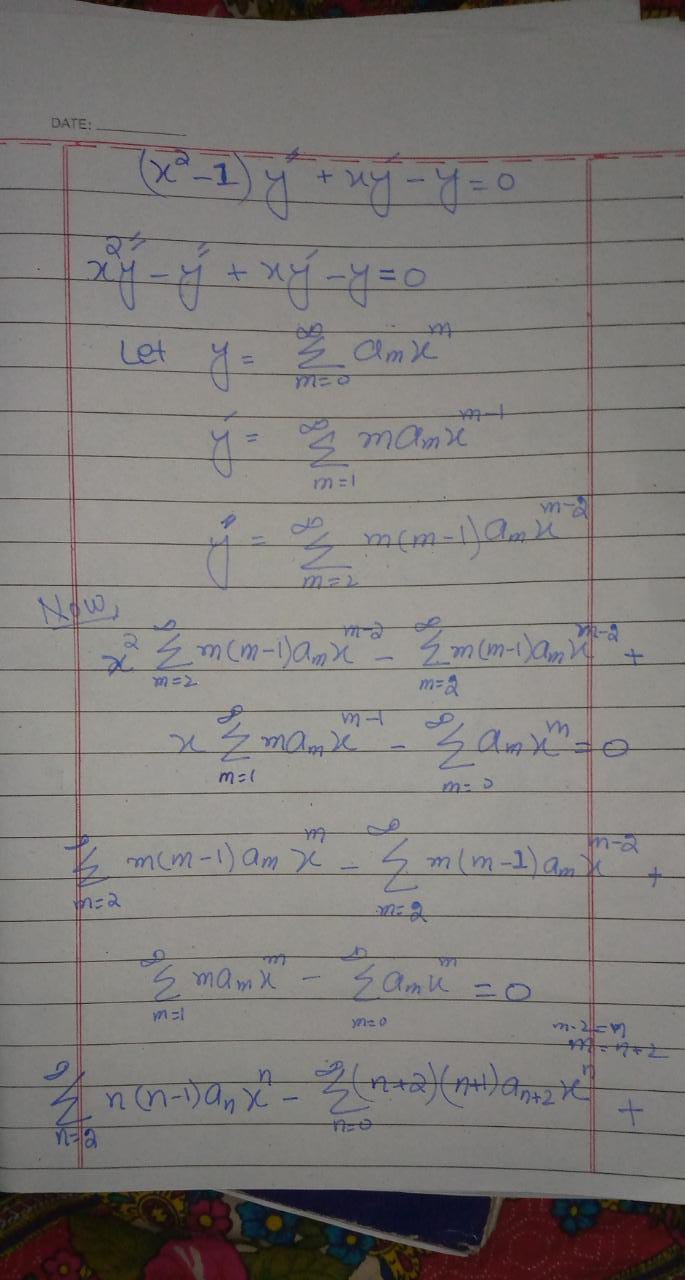 DATE:
(x² − 1) y″ + xy′ − y = 0
x²y″ − y″ + xy′ − y = 0
Let y = ∑_{m=0}^{∞} a_m x^m
y′ = ∑_{m=1}^{∞} m a_m x^{m−1}
y″ = ∑_{m=2}^{∞} m(m−1) a_m x^{m−2}
Now,
x² ∑_{m=2}^{∞} m(m−1) a_m x^{m−2} − ∑_{m=2}^{∞} m(m−1) a_m x^{m−2} +
x ∑_{m=1}^{∞} m a_m x^{m−1} − ∑_{m=0}^{∞} a_m x^m = 0
∑_{m=2}^{∞} m(m−1) a_m x^m − ∑_{m=2}^{∞} m(m−1) a_m x^{m−2} +
∑_{m=1}^{∞} m a_m x^m − ∑_{m=0}^{∞} a_m x^m = 0
m−2=n
m=n+2
∑_{n=2}^{∞} n(n−1) a_n x^n − ∑_{n=0}^{∞} (n+2)(n+1) a_{n+2} x^n +